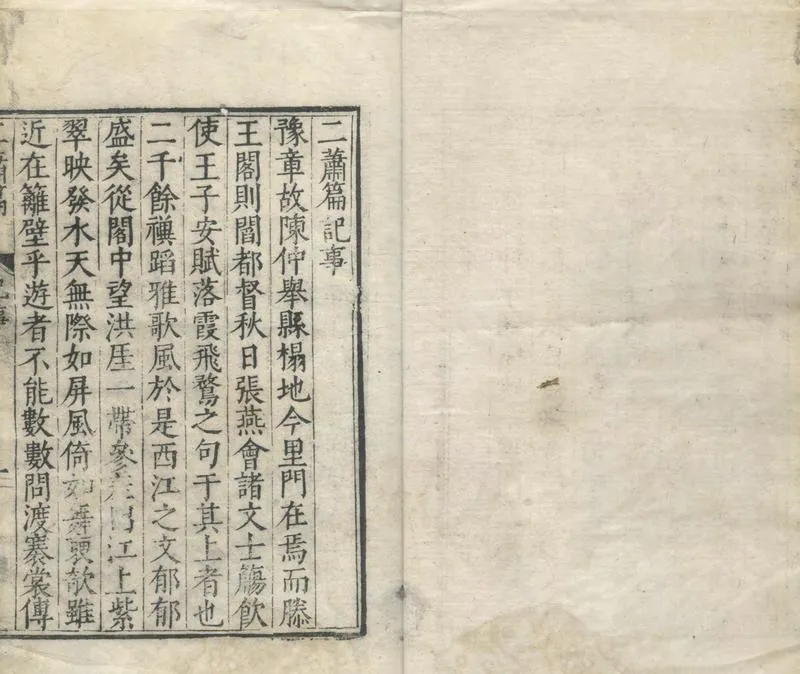 二蕭篇記事
豫章故陳仲舉縣榻地今里門在焉而滕
王閣則閻都督秋日張燕會諸文士觴飲
使王子安賦落霞飛鶩之句于其上者也
二千餘禩蹈雅歌風於是西江之文郁郁
盛矣從閣中望洪厓一帶參差出江上紫
翠映發水天無際如屏風倚如舞裏欹雖
近在籬壁乎遊者不能數數問渡褰裳傳
二蕭篇 記事 一